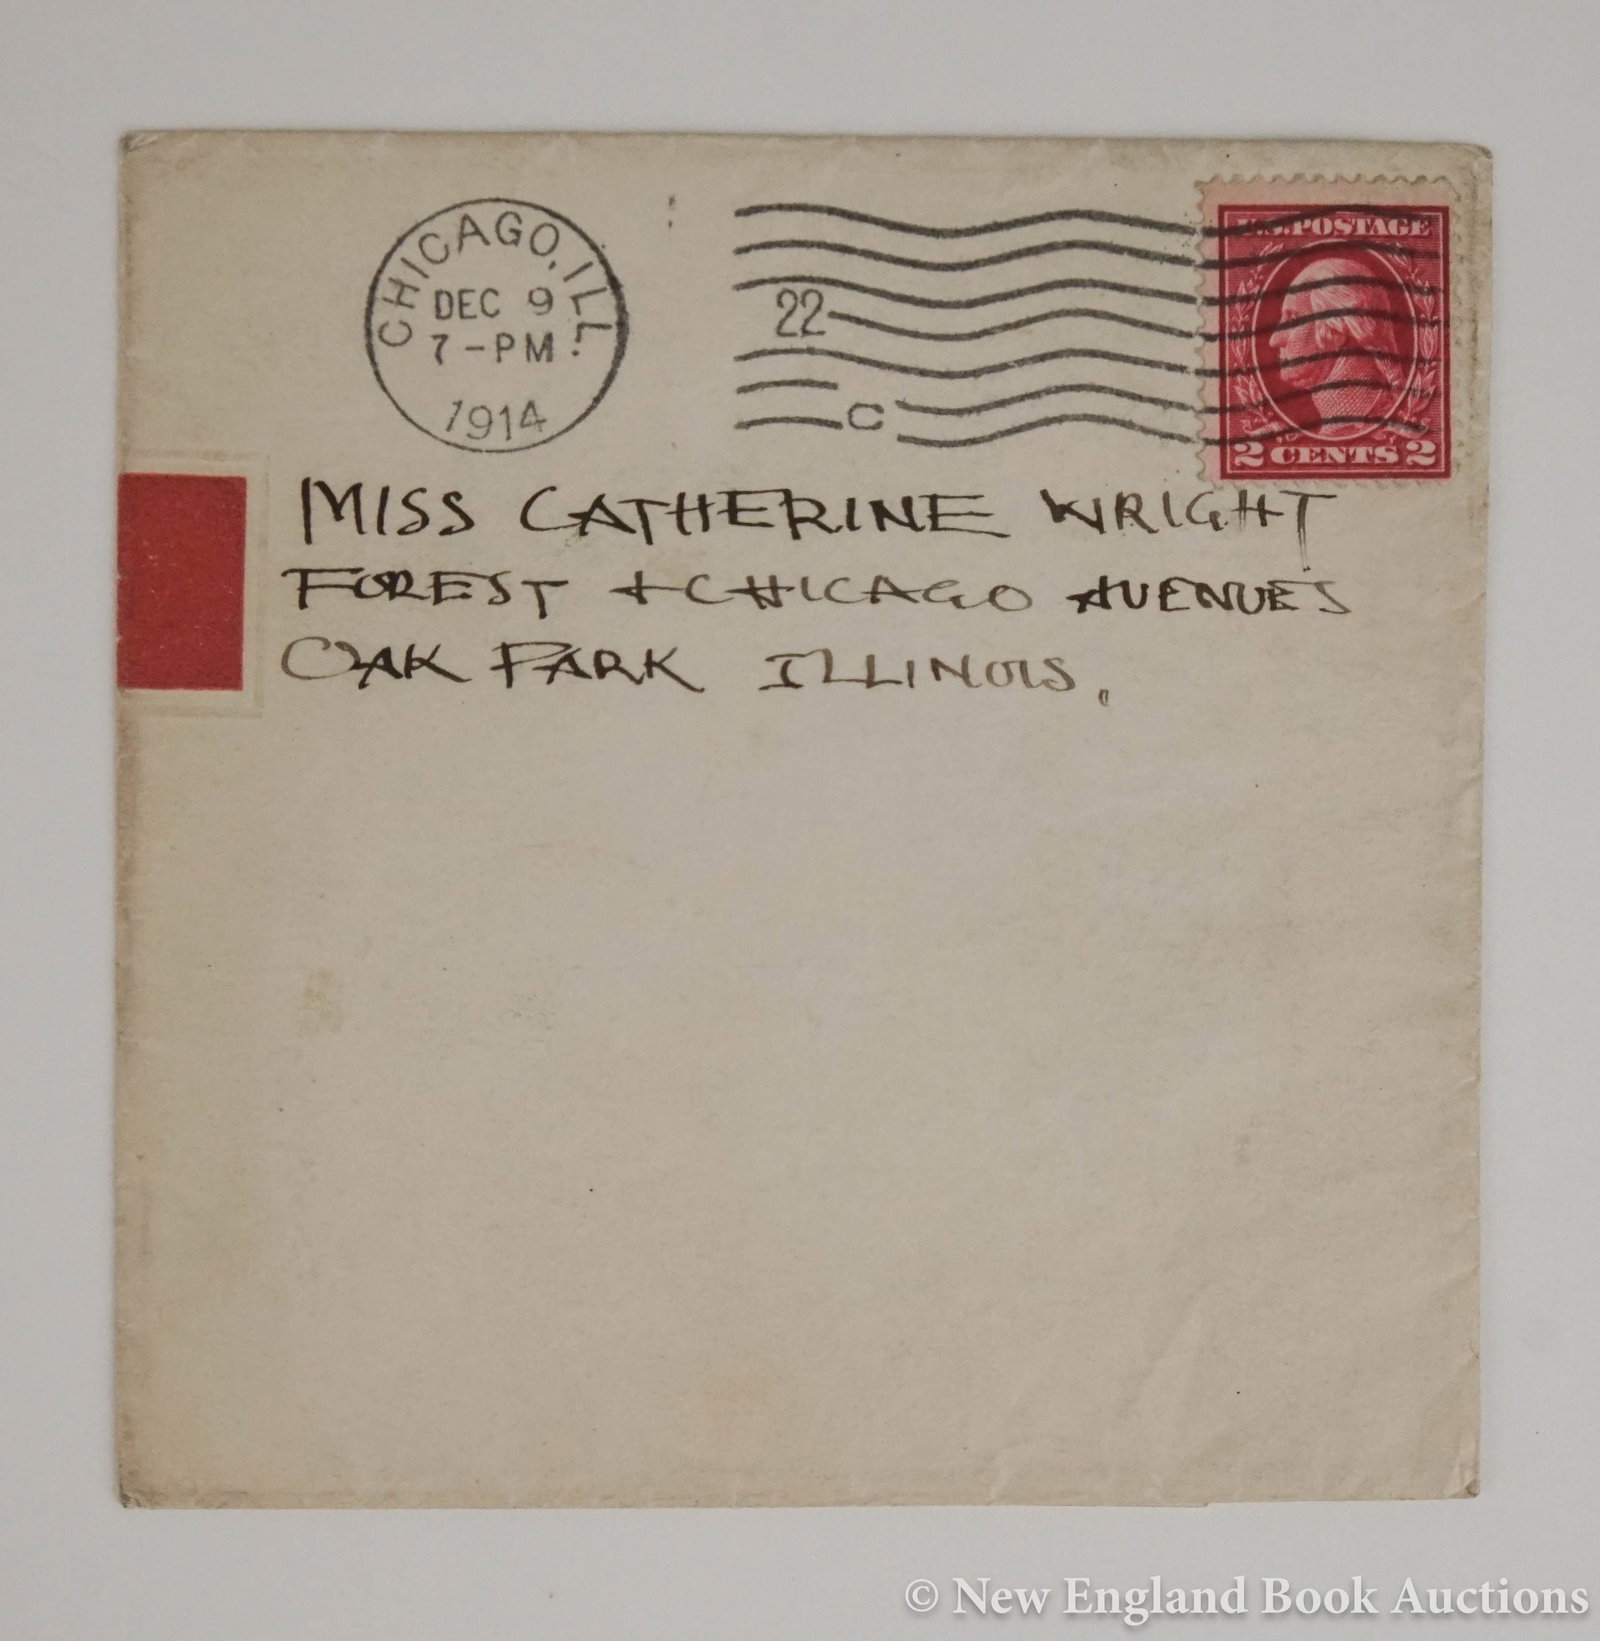 CHICAGO, ILL.
DEC 9
7-PM
1914
22
C
U.S. POSTAGE
2 CENTS 2
MISS CATHERINE WRIGHT
FOREST + CHICAGO AVENUES
OAK PARK ILLINOIS.
© New England Book Auctions